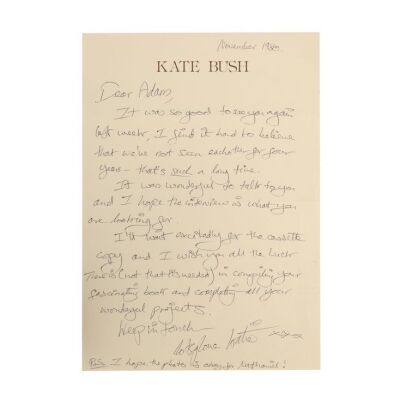 November 1980.
KATE BUSH
Dear Adam,
It was so good to see you again
last week, I find it hard to believe
that we've not seen eachother for four
years - that's such a long time.
It was wonderful to talk to you
and I hope the interview is what you
are looking for.
I'll wait excitedly for the cassette
copy and I wish you all the luck
There is (not that its needed) in compiling your
fascinating book and completing all your
wonderful projects.
Keep in Touch
lots of love Kate xxx
P.S. I hope the photo is okay for Nathaniel!